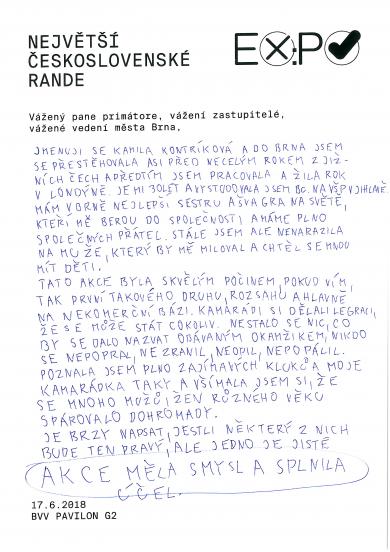 NEJVĚTŠÍ
ČESKOSLOVENSKÉ
RANDE
EX:PO
Vážený pane primátore, vážení zastupitelé,
vážené vedení města Brna,
JMENUJI SE KAMILA KONTRÍKOVÁ A DO BRNA JSEM
SE PŘESTĚHOVALA ASI PŘED NECELÝM ROKEM Z JIŽ-
NÍCH ČECH A PŘEDTÍM JSEM PRACOVALA A ŽILA ROK
V LONDÝNĚ. JE MI 30 LET A VYSTUDOVALA JSEM BC. NA VŠP V JIHLAVĚ.
MÁM V BRNĚ NEJLEPŠÍ SESTRU A ŠVAGRA NA SVĚTĚ,
KTEŘÍ MĚ BEROU DO SPOLEČNOSTI A MÁME PLNO
SPOLEČNÝCH PŘÁTEL. STÁLE JSEM ALE NENARAZILA
NA MUŽE, KTERÝ BY MĚ MILOVAL A CHTĚL SE MNOU
MÍT DĚTI.
TATO AKCE BYLA SKVĚLÝM POČINEM, POKUD VÍM,
TAK PRVNÍ TAKOVÉHO DRUHU, ROZSAHU A HLAVNĚ
NA NEKOMERČNÍ BÁZI. KAMARÁDI SI DĚLALI LEGRACI,
ŽE SE MŮŽE STÁT COKOLIV. NESTALO SE NIC, CO
BY SE DALO NAZVAT OBÁVANÝM OKAMŽIKEM, NIKDO
SE NEPOPRAL, NEZRANIL, NEOPIL, NEPOPÁLIL.
POZNALA JSEM PLNO ZAJÍMAVÝCH KLUKŮ A MOJE
KAMARÁDKA TAKY A VŠÍMALA JSEM SI, ŽE
SE MNOHO MUŽŮ, ŽEN RŮZNÉHO VĚKU
SPÁROVALO DOHROMADY.
JE BRZY NAPSAT, JESTLI NĚKTERÝ Z NICH
BUDE TEN PRAVÝ, ALE JEDNO JE JISTÉ
AKCE MĚLA SMYSL A SPLNILA
ÚČEL.
17.6.2018
BVV PAVILON G2